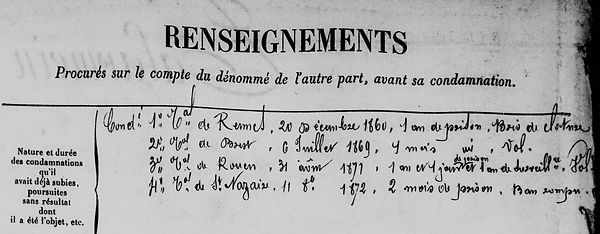 RENSEIGNEMENTS
Procurés sur le compte du dénommé de l'autre part, avant sa condamnation.
Nature et durée
des condamnations
qu'il
avait déjà subies,
poursuites
sans résultat
dont
il a été l'objet, etc.
Condé 1º Tal de Rennes, 20 Décembre 1860, 1 an de prison, Bris de cloture
2º Tal de Brest, 6 Juillet 1869, 4 mois id Vol.
3º Tal de Rouen, 31 août 1871, 1 an et 1 jour de prison et 1 an de surveillce, Vol
4º Tal de St Nazaire, 11 1872, 2 mois de prison, Ban rompu